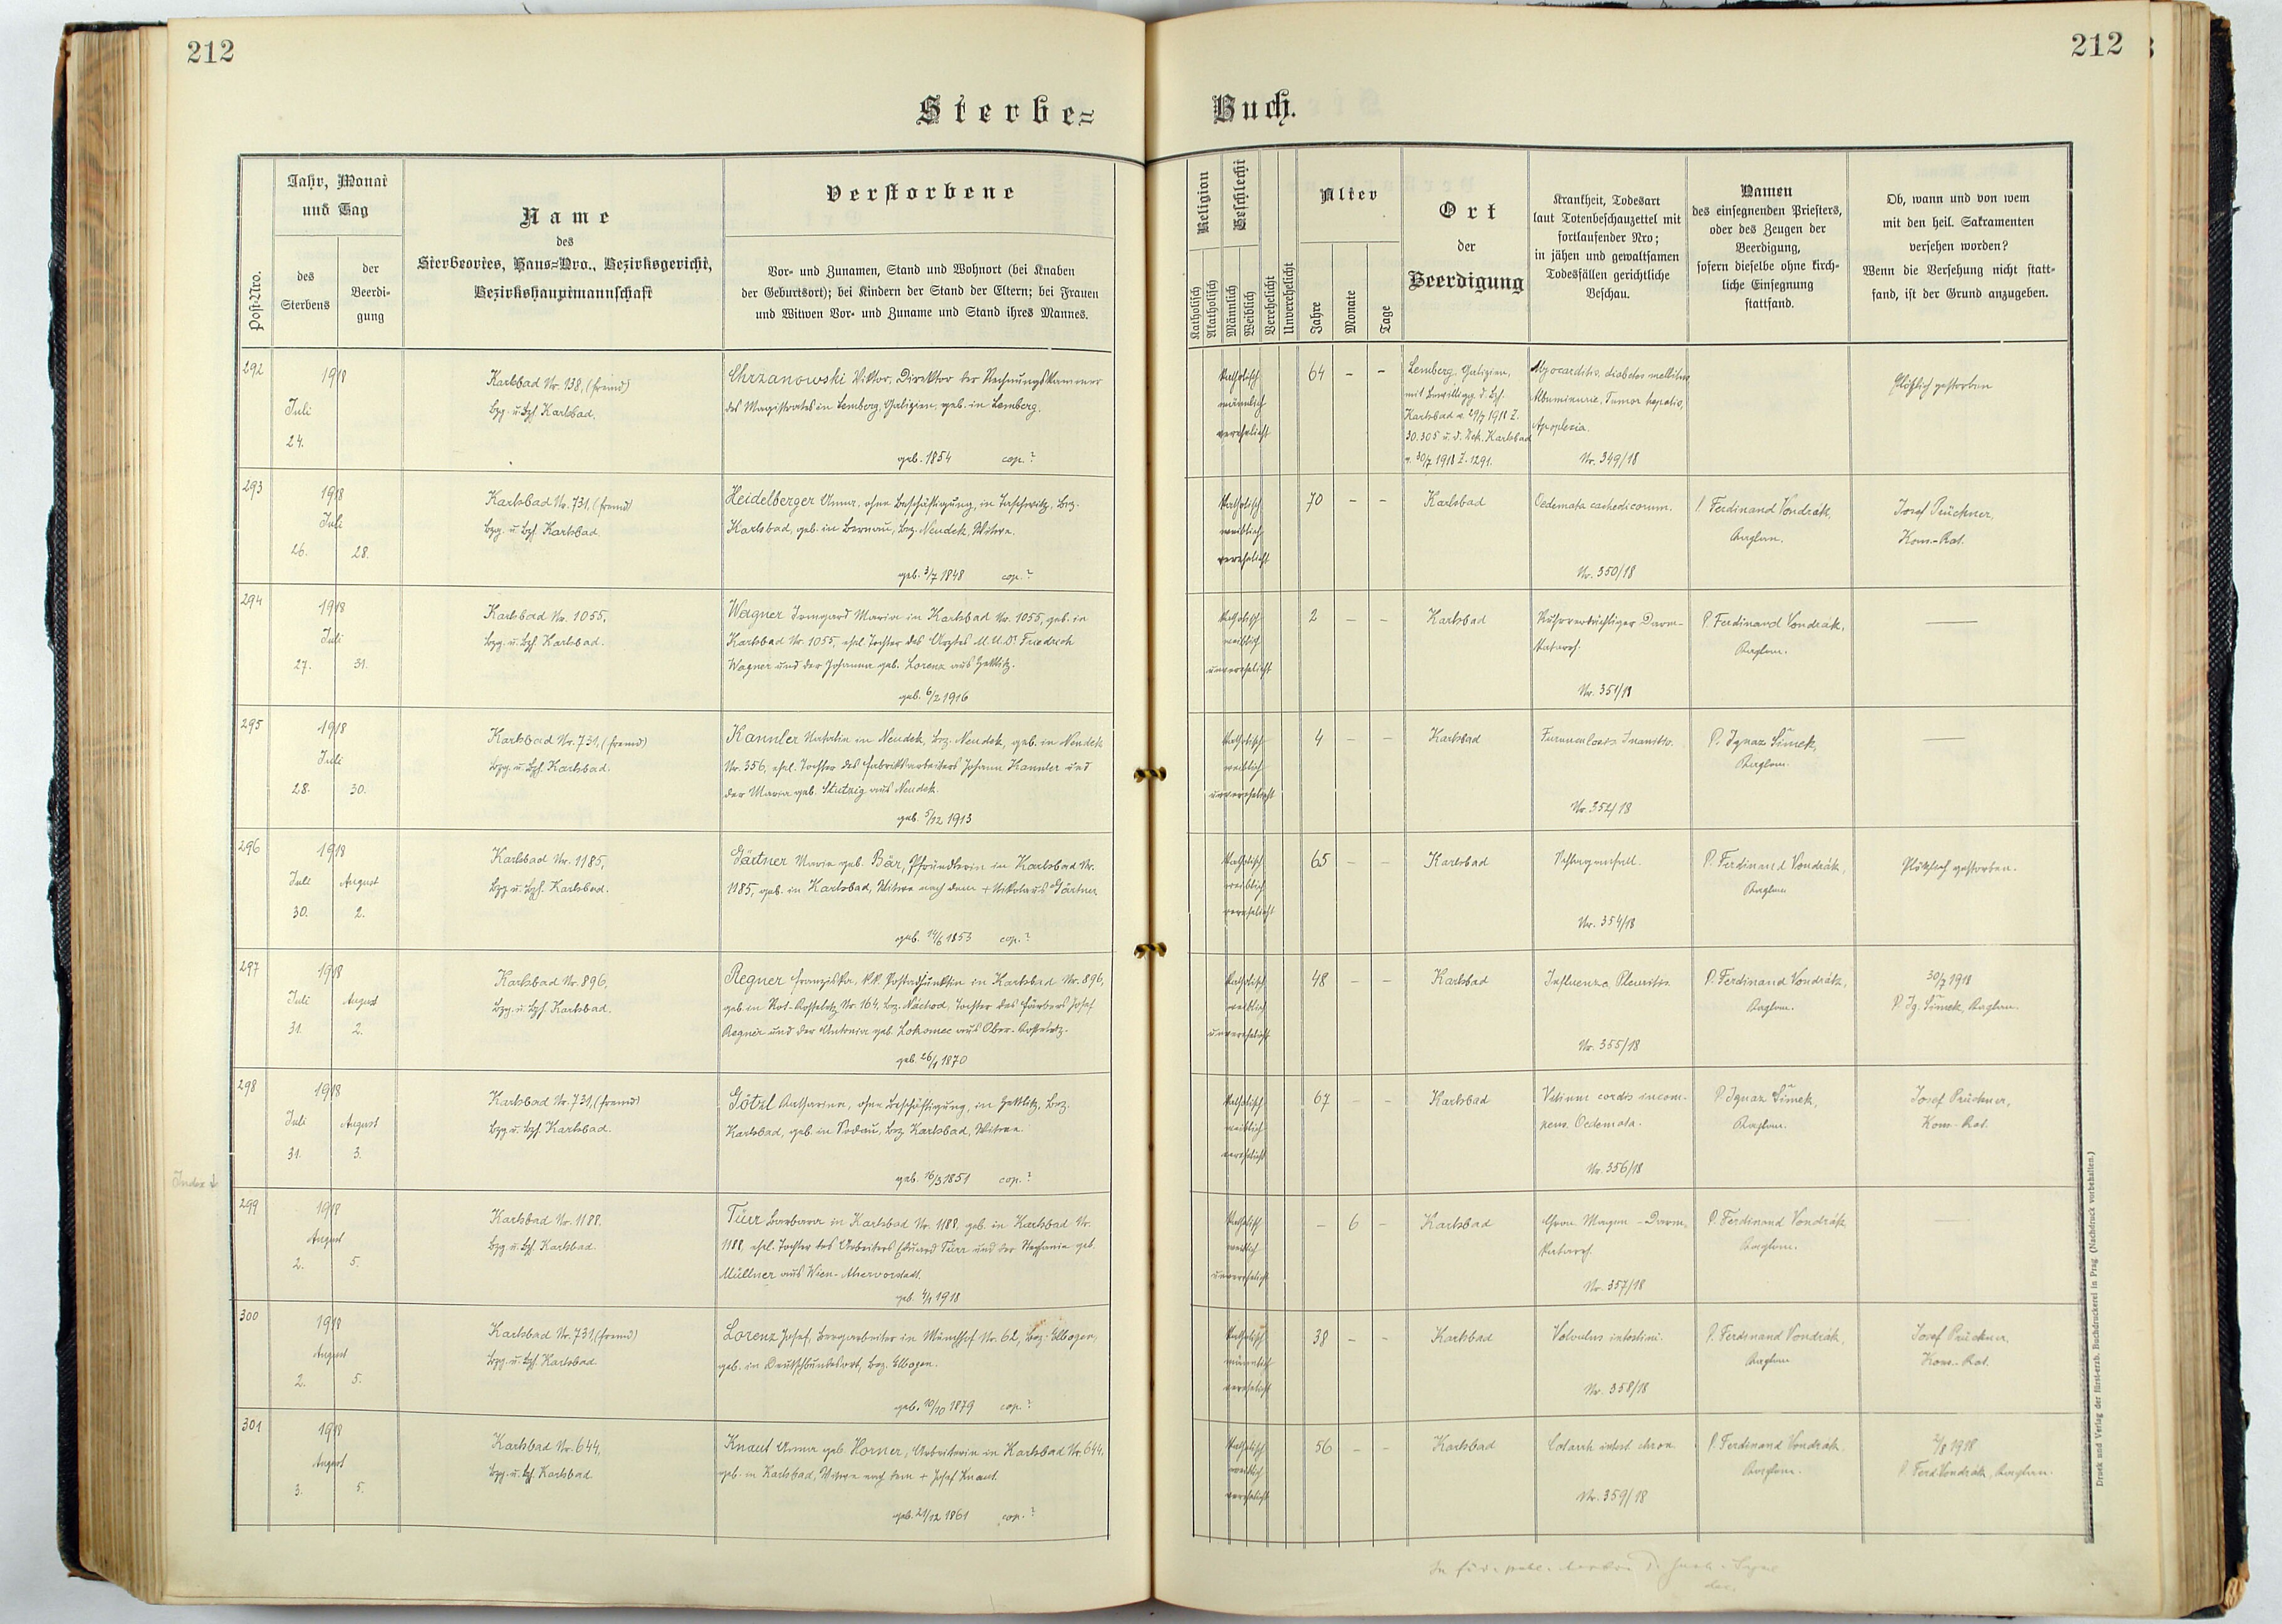 212
212
Sterbe=
Buch.
Post=Nro.
Jahr, Monat
und Tag
des
Sterbens
der
Beerdi=
gung
Name
des
Sterbeortes, Haus=Nro., Bezirksgericht,
Bezirkshauptmannschaft
Verstorbene
Vor= und Zunamen, Stand und Wohnort (bei Knaben
der Geburtsort); bei Kindern der Stand der Eltern; bei Frauen
und Witwen Vor= und Zuname und Stand ihres Mannes.
Religion
Katholisch
Akatholisch
Geschlecht
Männlich
Weiblich
Verehelicht
Unverehelicht
Alter
Jahre
Monate
Tage
Ort
der
Beerdigung
Krankheit, Todesart
laut Totenbeschauzettel mit
fortlaufender Nro;
in jähen und gewaltsamen
Todesfällen gerichtliche
Beschau.
Namen
des einsegnenden Priesters,
oder des Zeugen der
Beerdigung,
sofern dieselbe ohne kirch=
liche Einsegnung
stattfand.
Ob, wann und von wem
mit den heil. Sakramenten
versehen worden?
Wenn die Versehung nicht statt=
fand, ist der Grund anzugeben.
292
1918
Juli
24.
Karlsbad Nr. 138, (fremd)
Bzg. u. Bzh. Karlsbad.
Chrzanowski Viktor, Direktor der Rechnungskammer
des Magistrates in Lemberg, Galizien, geb. in Lemberg.
geb. 1854 cop. ?
katholisch
männlich
verehelicht
64 - -
Lemberg, Galizien,
mit Bewilligg. d. Bzh.
Karlsbad v. 29/7 1918 Z.
30.305 u. d. Dek. Karlsbad
v. 30/7 1918 Z. 1291.
Myocarditis, diabetes mellitus
Albuminurie, Tumor hepatis,
Apoplexia.
Nr. 349/18
Plötzlich gestorben
293
1918
Juli
26. 28.
Karlsbad Nr. 731, (fremd)
Bzg. u. Bzh. Karlsbad
Heidelberger Anna, ohne Beschäftigung, in Taschwitz, Bez.
Karlsbad, geb. in Bernau, Bez. Neudek, Witwe.
geb. 3/7 1848 cop. ?
katholisch
weiblich
verehelicht
70 - -
Karlsbad
Oedemata cachedicorum.
Nr. 350/18
P. Ferdinand Vondrák,
Kaplan.
Josef Prückner,
Kons.-Rat.
294
1918
Juli
27. 31.
Karlsbad Nr. 1055,
Bzg. u. Bzh. Karlsbad.
Wagner Irmgard Maria in Karlsbad Nr. 1055, geb. in
Karlsbad Nr. 1055, ehel. Tochter des Arztes M.U.Dr. Friedrich
Wagner und der Johanna geb. Lorenz aus Gettlitz.
geb. 6/2 1916
katholisch
weiblich
unverehelicht
2 - -
Karlsbad
Ruhrverdächtiger Darm-
katarrh.
Nr. 351/18
P. Ferdinand Vondrák,
Kaplan.
295
1918
Juli
28. 30.
Karlsbad Nr. 731, (fremd)
Bzg. u. Bzh. Karlsbad.
Kannler Natalia in Neudek, Bez. Neudek, geb. in Neudek
Nr. 356, ehel. Tochter des Fabriksarbeiters Johann Kannler und
der Maria geb. Stutzig aus Neudek.
geb. 5/12 1913
katholisch
weiblich
unverehelicht
4 - -
Karlsbad
Furunculosis Inanitio.
Nr. 352/18
P. Ignaz Šimek,
Kaplan.
296
1918
Juli August
30. 2.
Karlsbad Nr. 1185,
Bzg. u. Bzh. Karlsbad.
Gärtner Maria geb. Bär, Pfründlerin in Karlsbad Nr.
1185, geb. in Karlsbad, Witwe nach dem + Nikolaus Gärtner
geb. 14/6 1853 cop. ?
katholisch
weiblich
verehelicht
65 - -
Karlsbad
Schlaganfall.
Nr. 354/18
P. Ferdinand Vondrák,
Kaplan
Plötzlich gestorben.
297
1918
Juli August
31. 2.
Karlsbad Nr. 896,
Bzg. u. Bzh. Karlsbad.
Regner Franziska, k.k. Postadjunktin in Karlsbad Nr. 896,
geb. in Rot-Kosteletz Nr. 164, Bez. Náchod, Tochter des Färbers Josef
Regner und der Antonia geb. Lokomec aus Ober-Kosteletz.
geb. 26/1 1870
katholisch
weiblich
unverehelicht
48 - -
Karlsbad
Influenza, Pleuritis
Nr. 355/18
P. Ferdinand Vondrák,
Kaplan.
30/7 1918
P. Ig. Šimek, Kaplan.
298
1918
Juli August
31. 3.
Karlsbad Nr. 731, (fremd)
Bzg. u. Bzh. Karlsbad.
Götzl Katharina, ohne Beschäftigung, in Gettlitz, Bez.
Karlsbad, geb. in Podau, Bez. Karlsbad, Witwe.
geb. 16/3 1851 cop. ?
katholisch
weiblich
verehelicht
67 - -
Karlsbad
Vitium cordis incom-
pens. Oedemata.
Nr. 356/18
P. Ignaz Šimek,
Kaplan.
Josef Prückner,
Kons.-Rat.
Index
299
1918
August
2. 5.
Karlsbad Nr. 1188.
Bzg. u. Bzh. Karlsbad.
Türr Barbara in Karlsbad Nr. 1188, geb. in Karlsbad Nr.
1188, ehel. Tochter des Arbeiters Eduard Türr und der Stephanie geb.
Müllner aus Wien-Alservorstadt.
geb. 4/1 1918
katholisch
weiblich
unverehelicht
- 6 -
Karlsbad
Chron. Magen-Darm-
katarrh.
Nr. 357/18
P. Ferdinand Vondrák
Kaplan.
300
1918
August
2. 5.
Karlsbad Nr. 731, (fremd)
Bzg. u. Bzh. Karlsbad
Lorenz Josef, Bergarbeiter in Münchhof Nr. 62, Bez. Elbogen,
geb. in Deutschbundesort, Bez. Elbogen.
geb. 10/10 1879 cop. ?
katholisch
männlich
verehelicht
38 - -
Karlsbad
Volvulus intestini.
Nr. 358/18
P. Ferdinand Vondrák,
Kaplan
Josef Prückner,
Kons.-Rat.
301
1918
August
3. 5.
Karlsbad Nr. 644,
Bzg. u. Bzh. Karlsbad
Knaut Anna geb. Horner, Arbeiterin in Karlsbad Nr. 644,
geb. in Karlsbad, Witwe nach dem + Josef Knaut.
geb. 21/12 1861 cop. ?
katholisch
weiblich
verehelicht
56 - -
Karlsbad
Catarrh intest. chron.
Nr. 359/18
P. Ferdinand Vondrák
Kaplan.
2/8 1918
P. Ferd. Vondrák, Kaplan.
Druck und Verlag der fürst-erzb. Buchdruckerei in Prag (Nachdruck vorbehalten.)